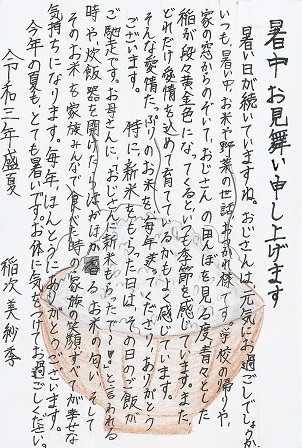 暑中お見舞い申し上げます
暑い日が続いていますね。おじさんは元気にお過ごしでしょうか。
いつも、暑い中、お米や野菜の世話、おつかれ様です。学校の帰りや、
家の窓からのぞいて、おじさんの田んぼを見る度、青々とした
稲が段々黄金色になってくるといつも季節を感じています。また、
どれだけ愛情を込めて育てているかもよく感じています。
そんな愛情たっぷりのお米を毎年、送ってくださり、ありがとう
ございます。特に、新米をもらった日は、その日のご飯が
ご馳走です。お母さんに、「おじさんに新米もらったよ〜♥」と言われる
時や炊飯器を開けたらほかほか香るお米の匂い、そして
そのお米を家族みんなで食べた時の家族の笑顔すべてが幸せな
気持ちになります。毎年、ほんとうにありがとうございます。
今年の夏も、とても暑いです。お体に気をつけてお過ごしください。
令和三年盛夏
稲次美紗季